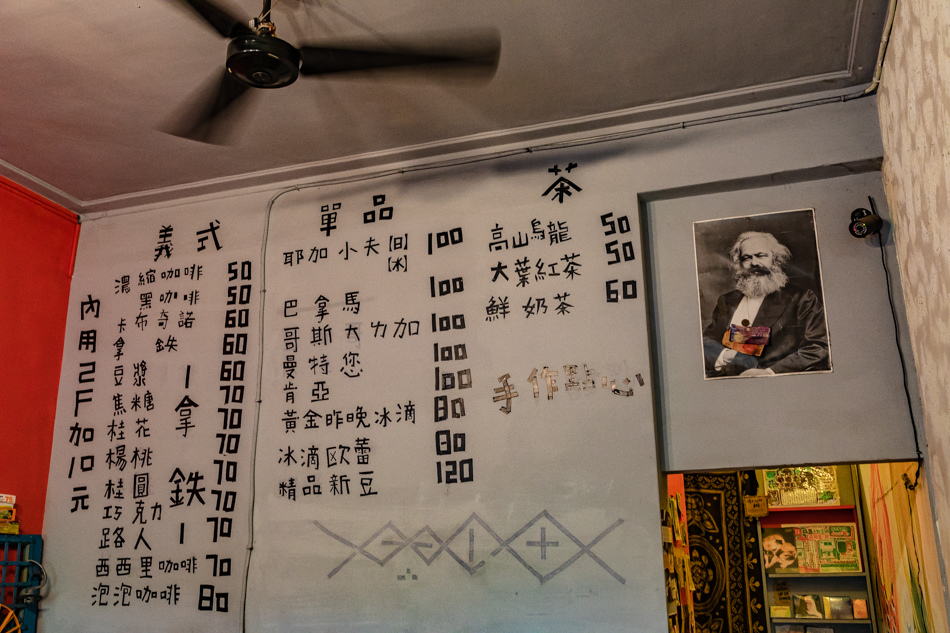 義式
濃縮咖啡 50
黑咖啡 50
卡布奇諾 60
拿鐵 60
豆漿 60
焦糖 70
桂花 70
楊桃 70
桂圓 70
巧克力 70
路人 70
拿鐵
西西里咖啡 70
泡泡咖啡 80
內用2F加10元
單品
耶加小夫[日] [水] 100
巴拿馬 100
哥斯大力加 100
曼特您 100
肯亞 100
黃金昨晚冰滴 80
冰滴歐蕾 80
精品新豆 120
茶
高山烏龍 50
大葉紅茶 50
鮮奶茶 60
手作點心